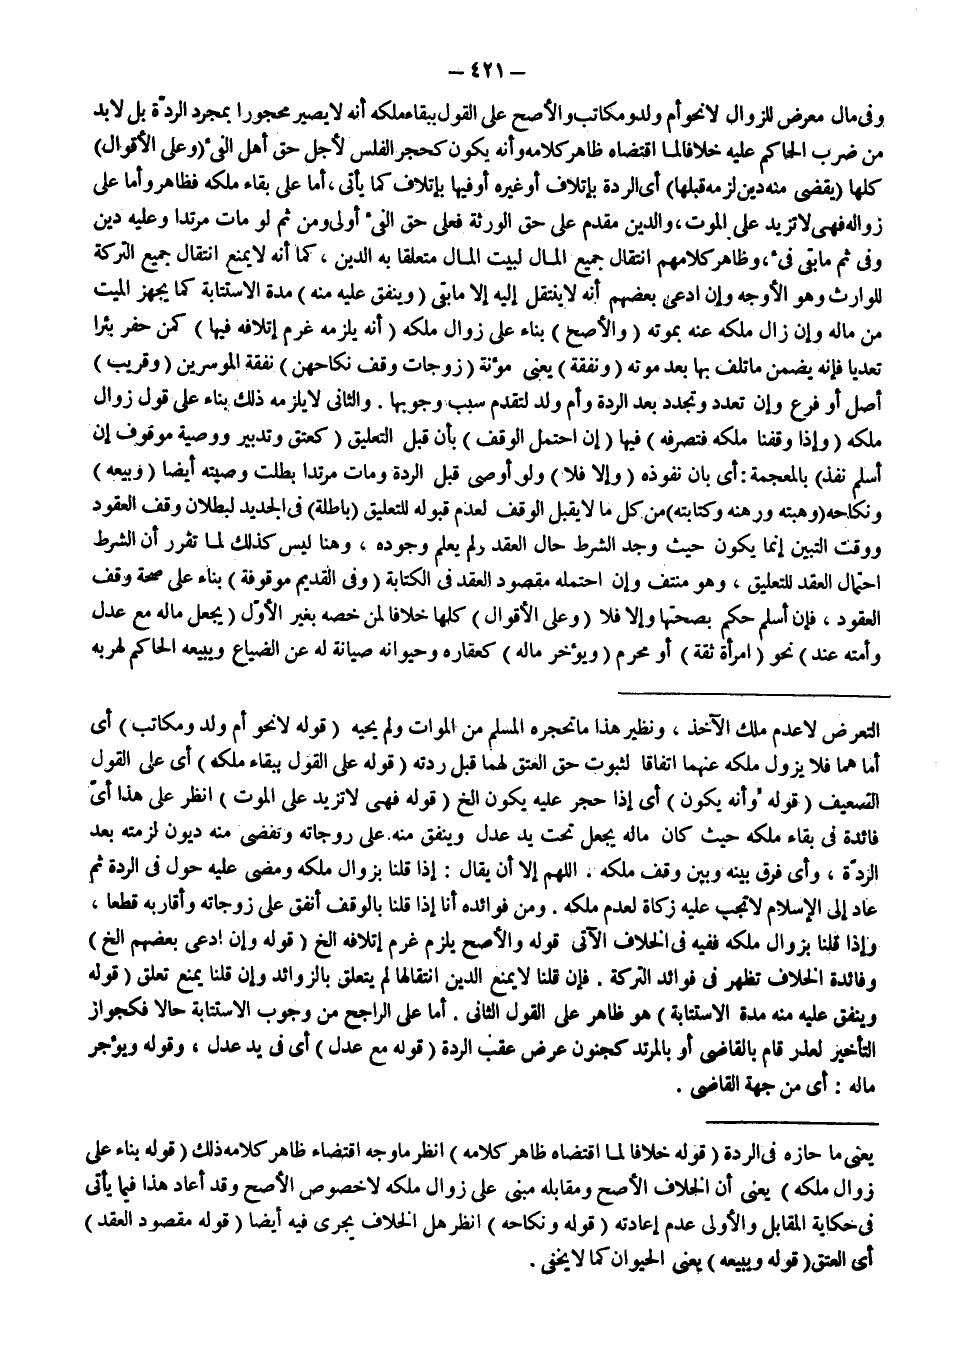 — ٤٢١ —
وفى مال معرض للزوال لانحو أم ولد ومكاتب والأصح على القول ببقاء ملكه أنه لايصير محجورا بمجرد الردّة بل لابد
من ضرب الحاكم عليه خلافا لما اقتضاه ظاهر كلامه وأنه يكون كحجر الفلس لأجل حق أهل الفىء (وعلى الأقوال)
كلها (يقضى منه دين لزمه قبلها) أى الردة بإتلاف أو غيره أو فيها بإتلاف كما يأتى، أما على بقاء ملكه فظاهر وأما على
زواله فهى لاتزيد على الموت، والدين مقدم على حق الورثة فعلى حق الفىء أولى ومن ثم لو مات مرتدا وعليه دين
وفى ثم مابقى فىء، وظاهر كلامهم انتقال جميع المال لبيت المال متعلقا به الدين ، كما أنه لايمنع انتقال جميع التركة
للوارث وهو الأوجه وإن ادعى بعضهم أنه لاينتقل إليه إلا مابقى ( وينفق عليه منه ) مدة الاستتابة كما يجهز الميت
من ماله وإن زال ملكه عنه بموته ( والأصح ) بناء على زوال ملكه ( أنه يلزمه غرم إتلافه فيها ) كمن حفر بئرا
تعديا فإنه يضمن ماتلف بها بعد موته ( ونفقة ) يعنى مؤنة ( زوجات وقف نكاحهن ) نفقة الموسرين ( وقريب )
أصل أو فرع وإن تعدد وتجدد بعد الردة وأم ولد لتقدم سبب وجوبها . والثانى لايلزمه ذلك بناء على قول زوال
ملكه ( وإذا وقفنا ملكه فتصرفه ) فيها ( إن احتمل الوقف ) بأن قبل التعليق ( كعتق وتدبير ووصية موقوف إن
أسلم نفذ) بالمعجمة : أى بان نفوذه ( وإلا فلا ) ولو أوصى قبل الردة ومات مرتدا بطلت وصيته أيضا ( وبيعه )
ونكاحه (وهبته ورهنه وكتابته) من كل ما لايقبل الوقف لعدم قبوله للتعليق (باطلة) فى الجديد لبطلان وقف العقود
ووقت التبين إنما يكون حيث وجد الشرط حال العقد ولم يعلم وجوده ، وهنا ليس كذلك لما تقرر أن الشرط
احتمال العقد للتعليق ، وهو منتف وإن احتمله مقصود العقد فى الكتابة ( وفى القديم موقوفة ) بناء على صحة وقف
العقود ، فإن أسلم حكم بصحتها وإلا فلا ( وعلى الأقوال ) كلها خلافا لمن خصه بغير الأوّل ( يجعل ماله مع عدل
وأمته عند ) نحو ( امرأة ثقة ) أو محرم ( ويؤخر ماله ) كعقاره وحيوانه صيانة له عن الضياع ويبيعه الحاكم لهربه
التعرض لاعدم ملك الآخذ ، ونظير هذا ماتحجره المسلم من الموات ولم يحيه ( قوله لانحو أم ولد ومكاتب ) أى
أما هما فلا يزول ملكه عنهما اتفاقا لثبوت حق العتق لهما قبل ردته ( قوله على القول ببقاء ملكه ) أى على القول
الضعيف ( قوله وأنه يكون ) أى إذا حجر عليه يكون الخ ( قوله فهى لاتزيد على الموت ) انظر على هذا أىّ
فائدة فى بقاء ملكه حيث كان ماله يجعل تحت يد عدل وينفق منه على زوجاته وتقضى منه ديون لزمته بعد
الردّة ، وأى فرق بينه وبين وقف ملكه . اللهم إلا أن يقال : إذا قلنا بزوال ملكه ومضى عليه حول فى الردة ثم
عاد إلى الإسلام لاتجب عليه زكاة لعدم ملكه . ومن فوائده أنا إذا قلنا بالوقف أنفق على زوجاته وأقاربه قطعا ،
وإذا قلنا بزوال ملكه ففيه فى الخلاف الآتى قوله والأصح يلزم غرم إتلافه الخ ( قوله وإن ادعى بعضهم الخ )
وفائدة الخلاف تظهر فى فوائد التركة . فإن قلنا لايمنع الدين انتقالها لم يتعلق بالزوائد وإن قلنا يمنع تعلق ( قوله
وينفق عليه منه مدة الاستتابة ) هو ظاهر على القول الثانى . أما على الراجح من وجوب الاستتابة حالا فكجواز
التأخير لعذر قام بالقاضى أو بالمرتد كجنون عرض عقب الردة ( قوله مع عدل ) أى فى يد عدل ، وقوله ويؤجر
ماله : أى من جهة القاضى .
يعنى ما حازه فى الردة ( قوله خلافا لما اقتضاه ظاهر كلامه ) انظر ماوجه اقتضاء ظاهر كلامه ذلك ( قوله بناء على
زوال ملكه ) يعنى أن الخلاف الأصح ومقابله مبنى على زوال ملكه لاخصوص الأصح وقد أعاد هذا فيما يأتى
فى حكاية المقابل والأولى عدم إعادته ( قوله ونكاحه ) انظر هل الخلاف يجرى فيه أيضا ( قوله مقصود العقد )
أى العتق ( قوله ويبيعه ) يعنى الحيوان كما لايخفى .